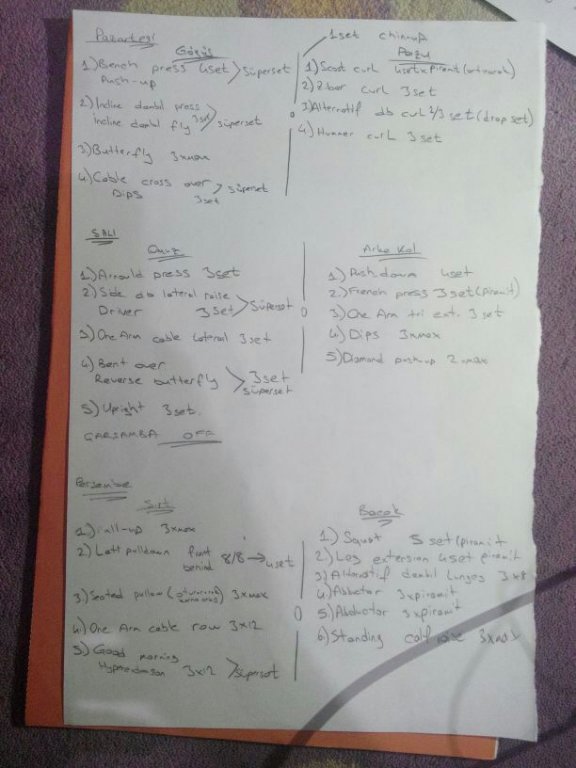 Pazartesi
Göğüs
1) Bench press 4set > Süperset
Push-up
2) Incline dambıl press
Incline dambıl fly 3set > süperset
3) Butterfly 3xmax
4) Cable cross over > süperset
Dips 3set
1set chinup
Pazu
1) Scot curl 4set xpiramit (artırarak)
2) Z bar curl 3 set
3) Alternatif db curl 2/3 set (drop set)
4) Hummer curl 3 set
SALI
Omuz
1.) Arnould press 3set
2) Side db lateral raise
Driver 3set > Süperset
3) One Arm cable lateral 3 set
4) Bent over
Reverse butterfly > 3set
süperset
5) Upright 3set.
ÇARŞAMBA OFF
Arka Kol
1) Pushdown 4set
2.) French press 3 set (piramit)
3) One Arm tri ext. 3 set
4) Dips 3xmax
5) Diamond pushup 2xmax
Perşembe
Sırt
1.) Pull-up 3xmax
2) Latt pulldown front
behind 8/8 → 4set
3) Seated pullow 3xmax
4) One Arm cable row 3x12
5) Good morning
3x12 > süperset
Bacak
1.) Squat 5 set (piramit
2) Leg extension 4set piramit
3) Alternatif dambıl lunges 3x8
4) Abductor 3xpiramit
5.) Abductor 3xpiramit
6) Standing calf raise 3xmax